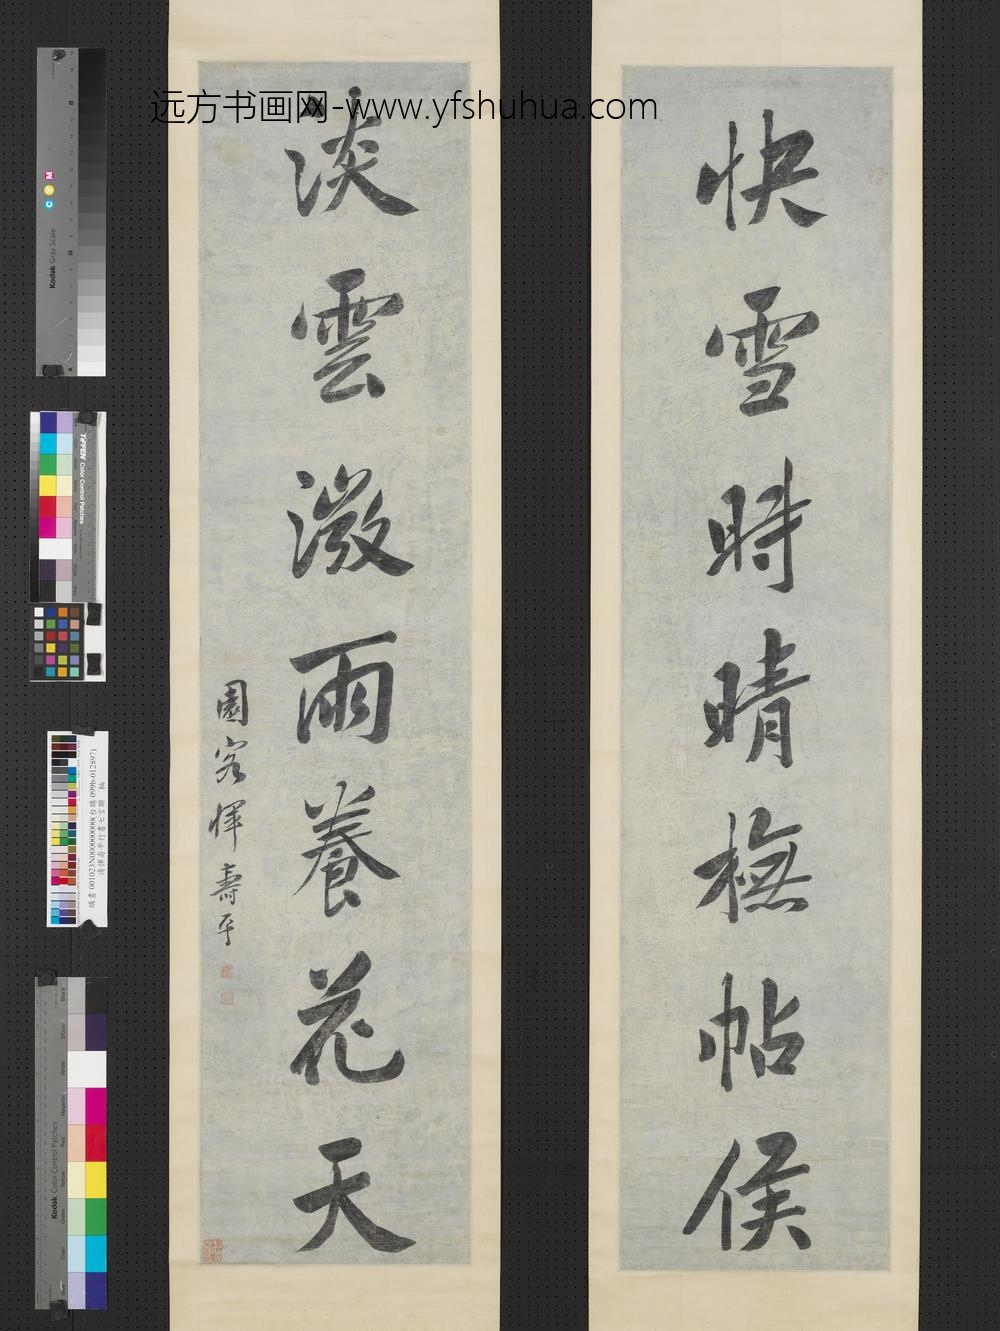 远方书画网-www.yfshuhua.com
快雪時晴橅帖侯
淡雲微雨養花天
園客惲壽平
Kodak Gray Scale
C Y M
TIFFEN Color Control Patches
清惲壽平行書七言聯 軸
Kodak Color Control Patches
Black
3/Color
White
Magenta
Red
Yellow
Green
Cyan
Blue